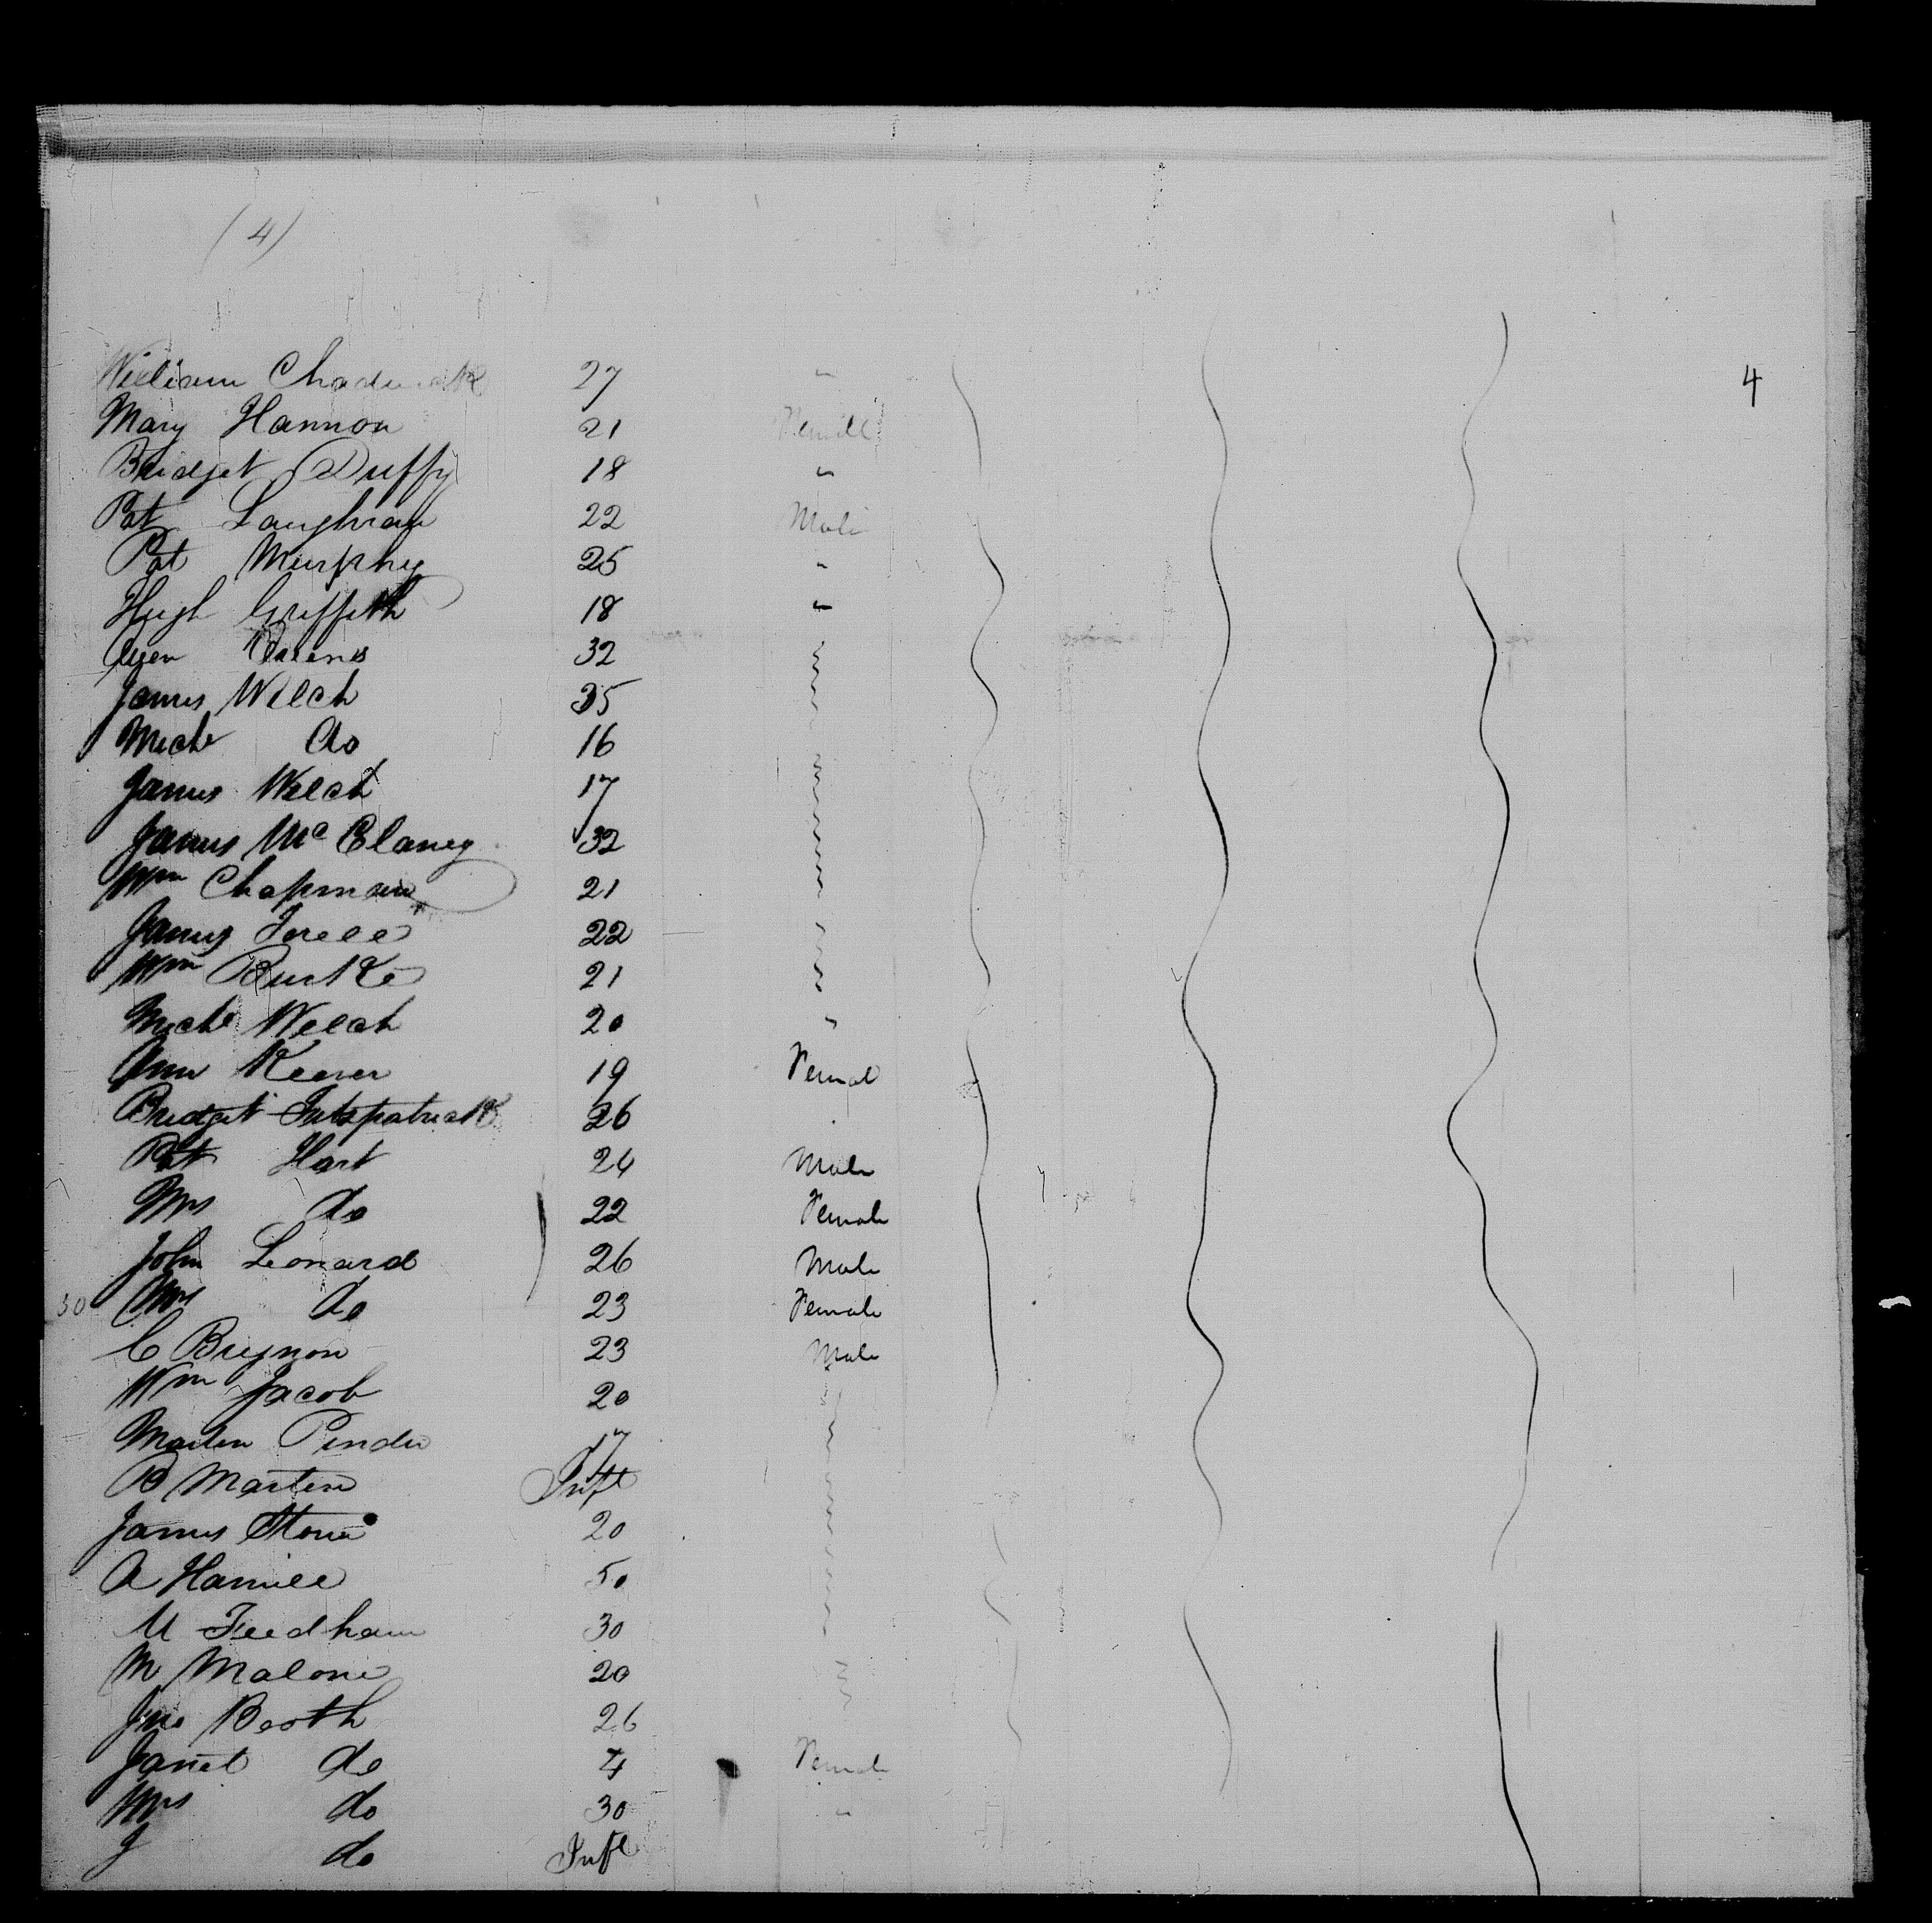 (4)
William Chadwick 27 " 4
Mary Hannon 21 Female
Bridget Duffy 18 "
Pat Laughran 22 Male
Pat Murphy 25 "
Hugh Griffith 18 "
Owens 32
James Welch 35
Michl do 16
James Welch 17
James Mc Elaney 32
Wm Chapman 21
James 22
Wm Burke 21
Michl Welch 20 "
Ann 19 Femal
Bridget Fitzpatrick 26
Pat Hart 24 Male
Mrs do 22 Female
John Leonard 26 Male
30 Mrs do 23 Female
C 23 Male
Wm Jacob 20
Martin 17
B Martin Inft
James Stone 20
A Hamill 50
M 30
M Malone 20
Jno Booth 26
Janet do 4 Female
Mrs do 30 "
J do Inft